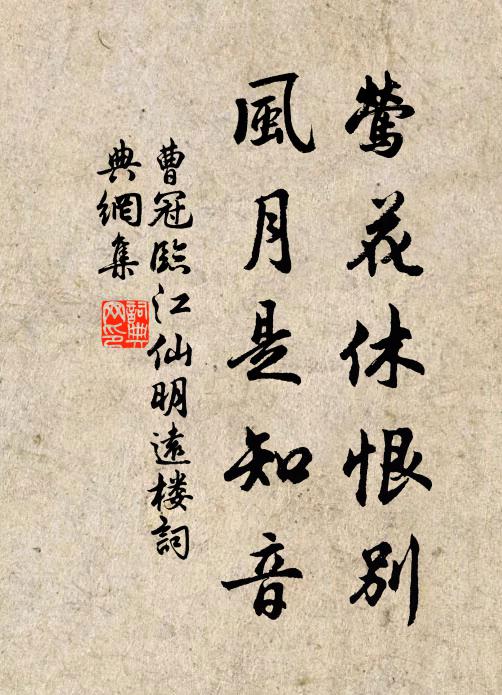 鶯花休恨别
風月是知音
曹冠臨江仙明遠楼詞
典網集
詞典
网印